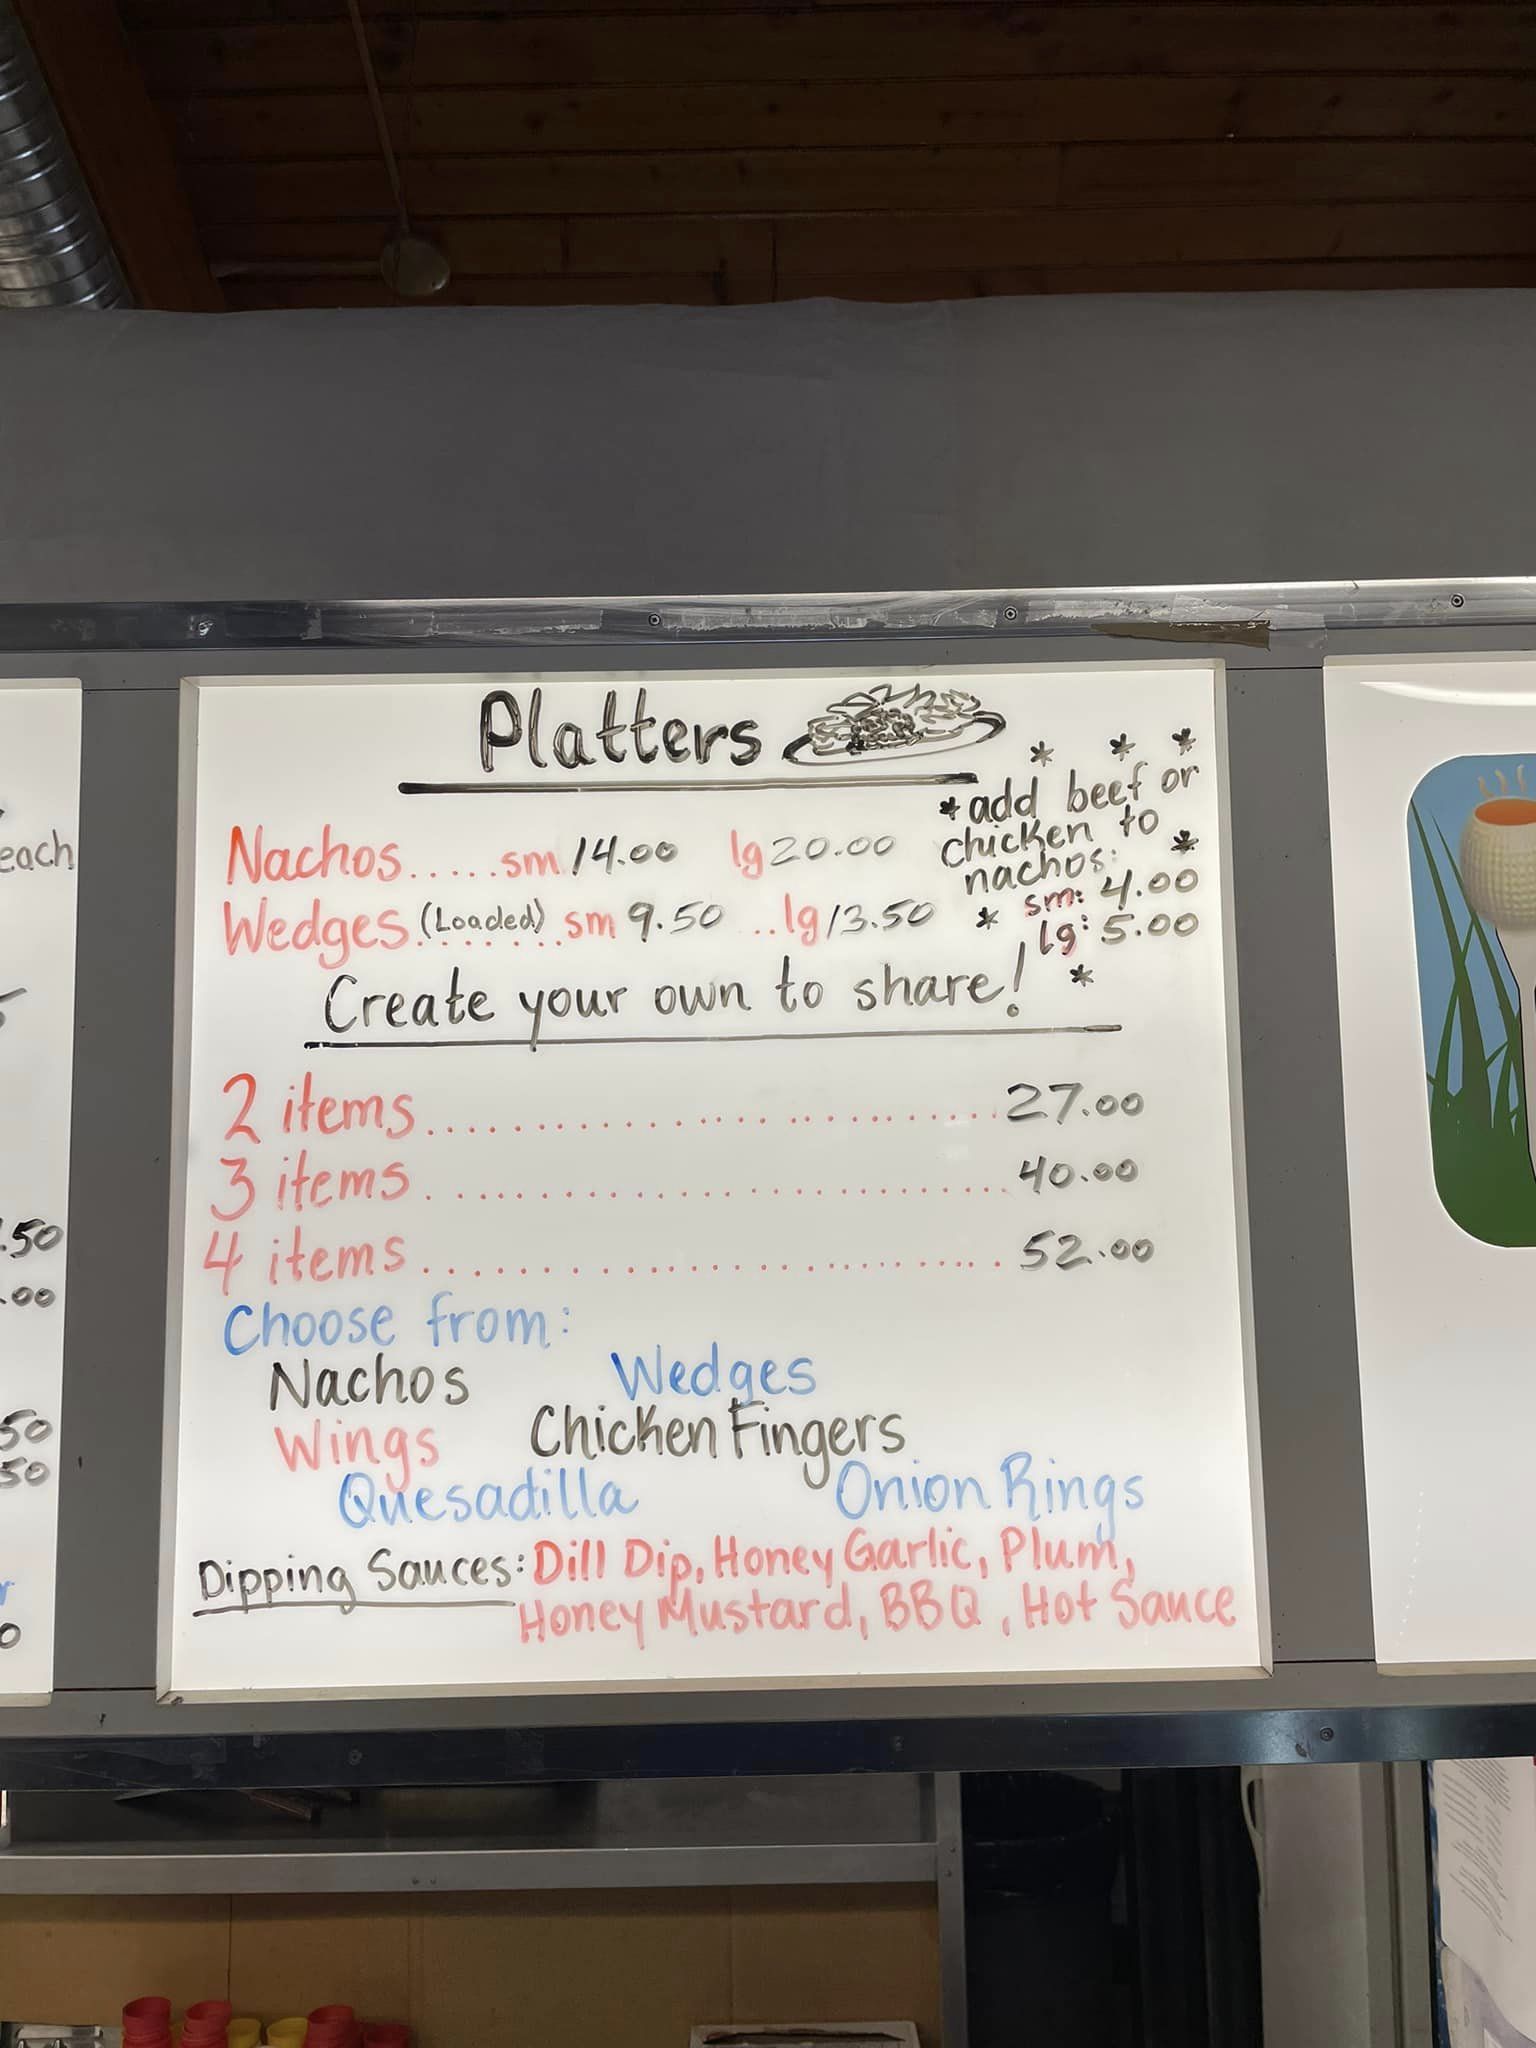 Platters
* * *
*add beef or
chicken to
nachos: *
sm: 4.00
* lg: 5.00
*
Nachos.....sm 14.00 lg 20.00
Wedges (Loaded)........sm 9.50 ..lg 13.50
Create your own to share!
2 items..........................27.00
3 items..........................40.00
4 items..........................52.00
Choose from:
Nachos Wedges
Wings Chicken Fingers
Quesadilla Onion Rings
Dipping Sauces: Dill Dip, Honey Garlic, Plum,
Honey Mustard, BBQ, Hot Sauce
each
.50
.00
50
50